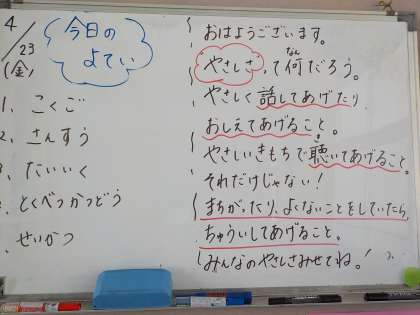 4/23
(金)
今日の
よてい
1、こくご
2、さんすう
3、たいいく
、とくべつかつどう
、せいかつ
おはようございます。
やさしさって何だろう。
なん
やさしく話してあげたり
おしえてあげること。
やさしいきもちで聴いてあげること。
き
それだけじゃない！
まちがったり、よくないことをしていたら、
ちゅういしてあげること。
みんなのやさしさみせてね。！